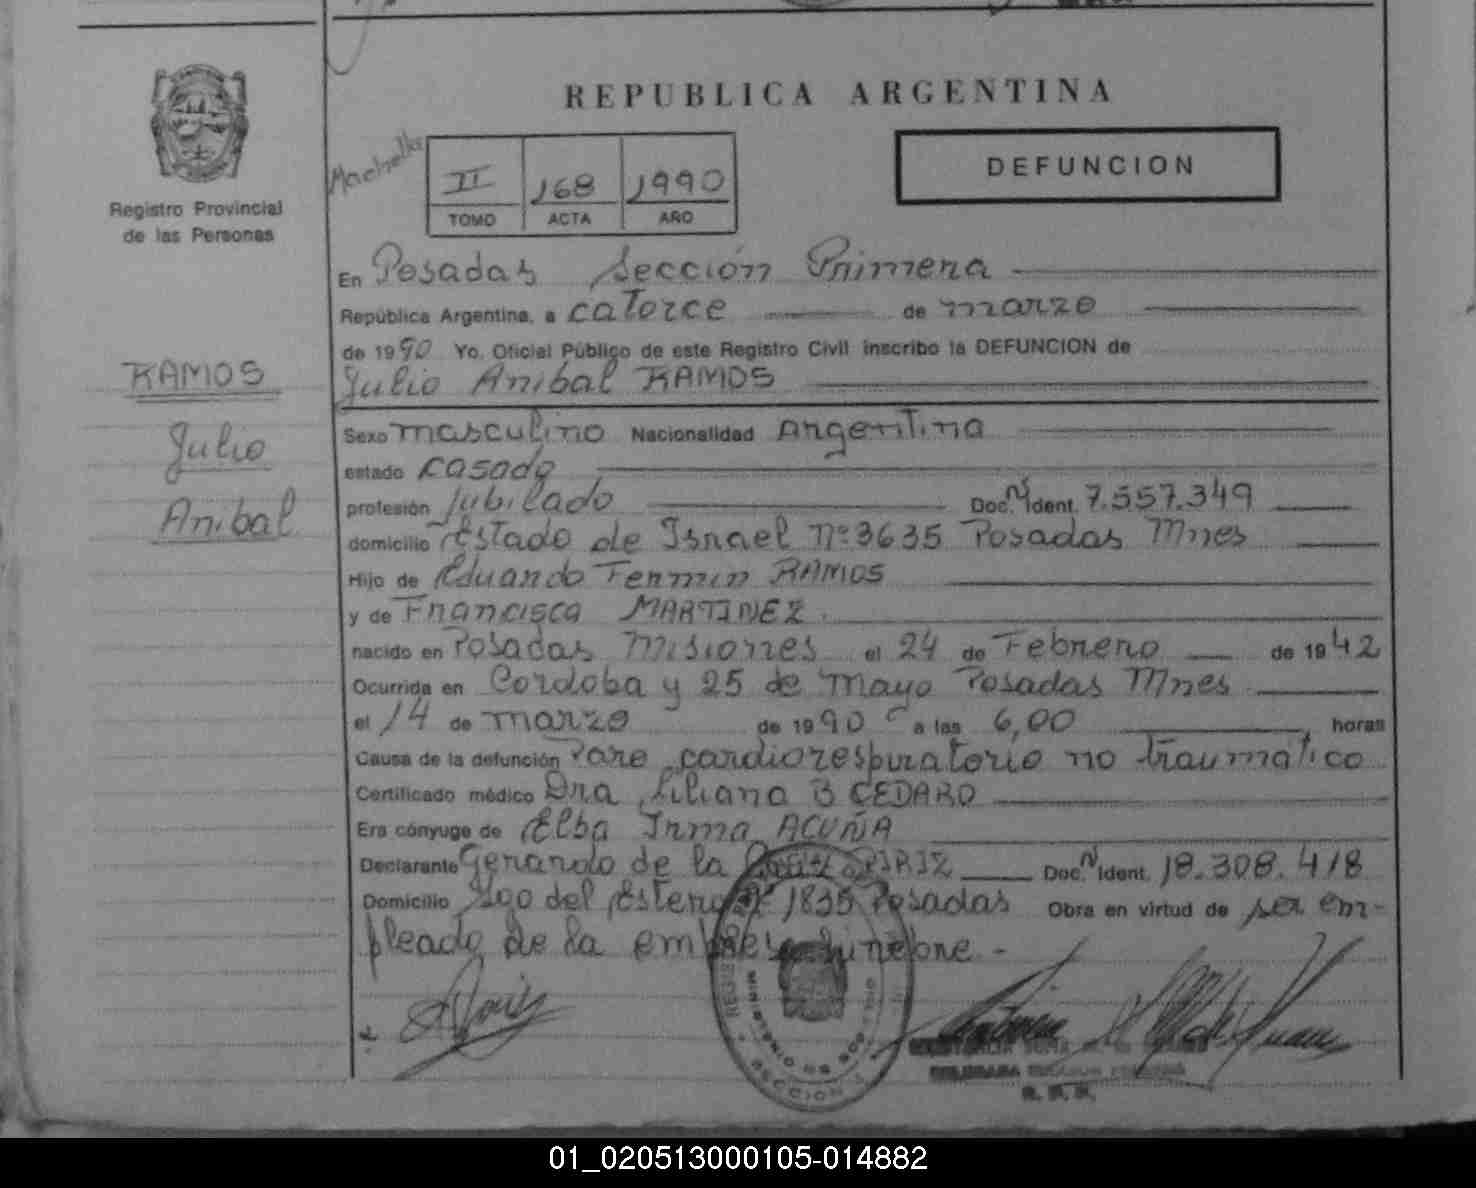 REPUBLICA ARGENTINA
DEFUNCION
Registro Provincial
de las Personas
II 168 1990
TOMO ACTA AÑO
En Posadas Sección Primera
República Argentina, a catorce de marzo
de 1990 Yo, Oficial Público de este Registro Civil inscribo la DEFUNCION de
Julio Anibal RAMOS
RAMOS
Julio
Anibal
Sexo masculino Nacionalidad Argentina
estado casado
profesión Jubilado Doc. N Ident. 7.557.349
domicilio Estado de Israel Nº 3635 Posadas Mnes
Hijo de Eduardo Fermin RAMOS
y de Francisca MARTINEZ.
nacido en Posadas Misiones el 24 de Febrero de 1942
Ocurrida en Cordoba y 25 de Mayo Posadas Mnes
el 14 de marzo de 1990 a las 6,00 horas
Causa de la defunción Paro cardiorespiratorio no traumático
Certificado médico Dra Liliana B CEDARO
Era cónyuge de Elba Irma ACUÑA
Declarante Gerardo de la PIRIZ Doc. N Ident. 18.308.418
Domicilio Sgo del Estero Nº 1835 Posadas Obra en virtud de ser em-
pleado de la empresa -
SECCION
R. P. P.
01_020513000105-014882